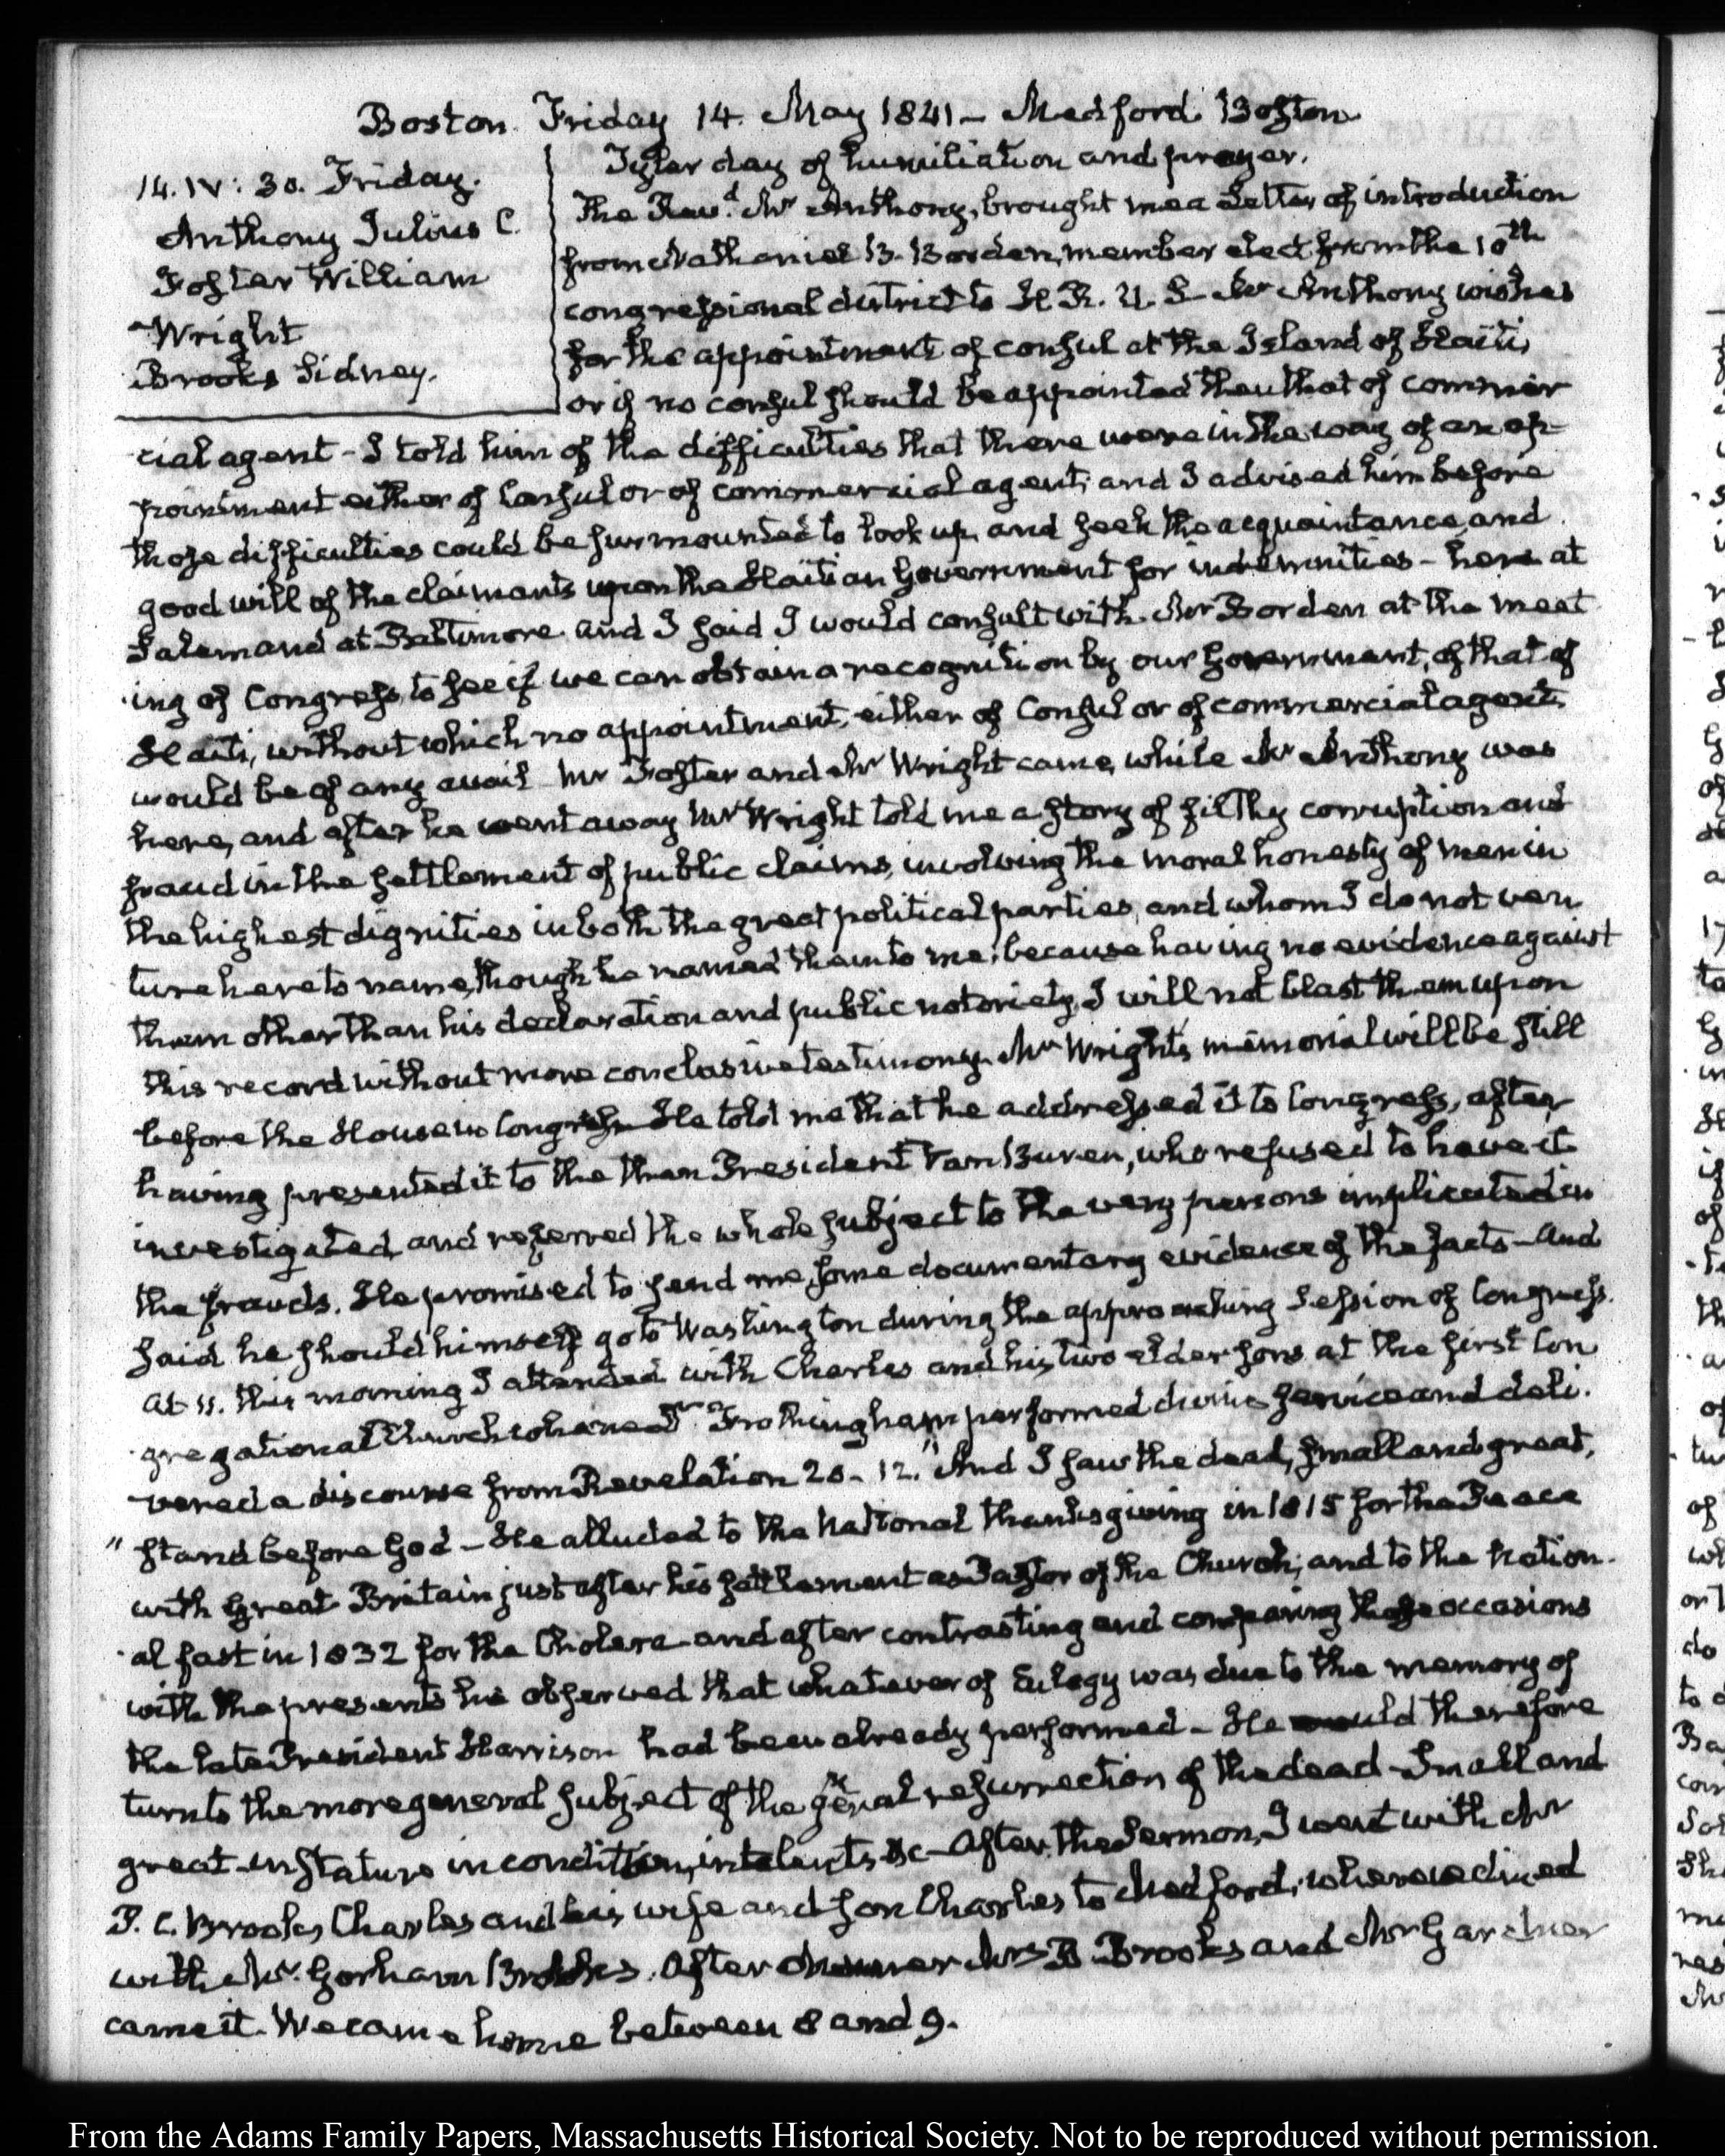 Boston. Friday 14. May 1841 — Medford. Boston
14. IV: 30. Friday.
Anthony Julius C.
Foster William
Wright
Brooks Sidney.
Tyler day of humiliation and prayer.
The Revd. Mr Anthony, brought me a Letter of introduction
from Nathaniel B. Borden, member elect from the 10th
congressional district to H. R. U. S. Mr Anthony wishes
for the appointment of consul at the Island of Haiti,
or if no consul should be appointed then that of commer
cial agent - I told him of the difficulties that there were in the way of an ap-
pointment either of Consul or of commercial agent; and I advised him before
those difficulties could be surmounted to look up, and seek the acquaintance, and
good will of the claimants upon the Haitian Government for indemnities - here at
Salem and at Baltimore and I said I would consult with Mr Borden at the meet
ing of Congress to see if we can obtain a recognition by our Government, of that of
Haiti, without which no appointment, either of Consul or of commercial agent
would be of any avail - Mr Foster and Mr Wright came, while Mr Anthony was
here, and after he went away Mr Wright told me a story of filthy corruption and
fraud in the settlement of public claims, involving the moral honesty of men in
the highest dignities in both the great political parties, and whom I do not ven
ture here to name, though he named them to me; because having no evidence against
them other than his declaration and public notoriety, I will not blast them upon
this record without more conclusive testimony. Mr Wright's memorial will be still
before the House in Congress He told me that he addressed it to Congress, after
having presented it to the then President Van Buren, who refused to have it
investigated, and referred the whole subject to the very persons implicated in
the frauds. He promised to send me, some documentary evidence of the facts - and
said he should himself go to Washington during the approaching Session of Congress.
At 11. this morning I attended with Charles and his two elder sons at the first Con
gregational Church where Frothingham performed divine service and deli-
vered a discourse from Revelation 20. 12. "And I saw the dead, small and great,
" stand before God - He alluded to the National thanksgiving in 1815 for the Peace
with Great Britain just after his settlement as Pastor of the Church; and to the Nation-
al fast in 1832 for the Cholera - and after contrasting and comparing those occasions
with the present he observed that whatever of Eulogy was due to the memory of
the late President Harrison had been already performed - He would therefore
turn to the more general subject of the general resurrection of the dead - Small and
great - in Stature in condition, in talents &c - After the Sermon, I went with Mr
P. C. Brooks, Charles and his wife and son Charles to Medford; where we dined
with Mr. Gorham Brooks. After dinner Mrs B Brooks and Mr Gardner
came it. We came home between 8 and 9.
From the Adams Family Papers, Massachusetts Historical Society. Not to be reproduced without permission.